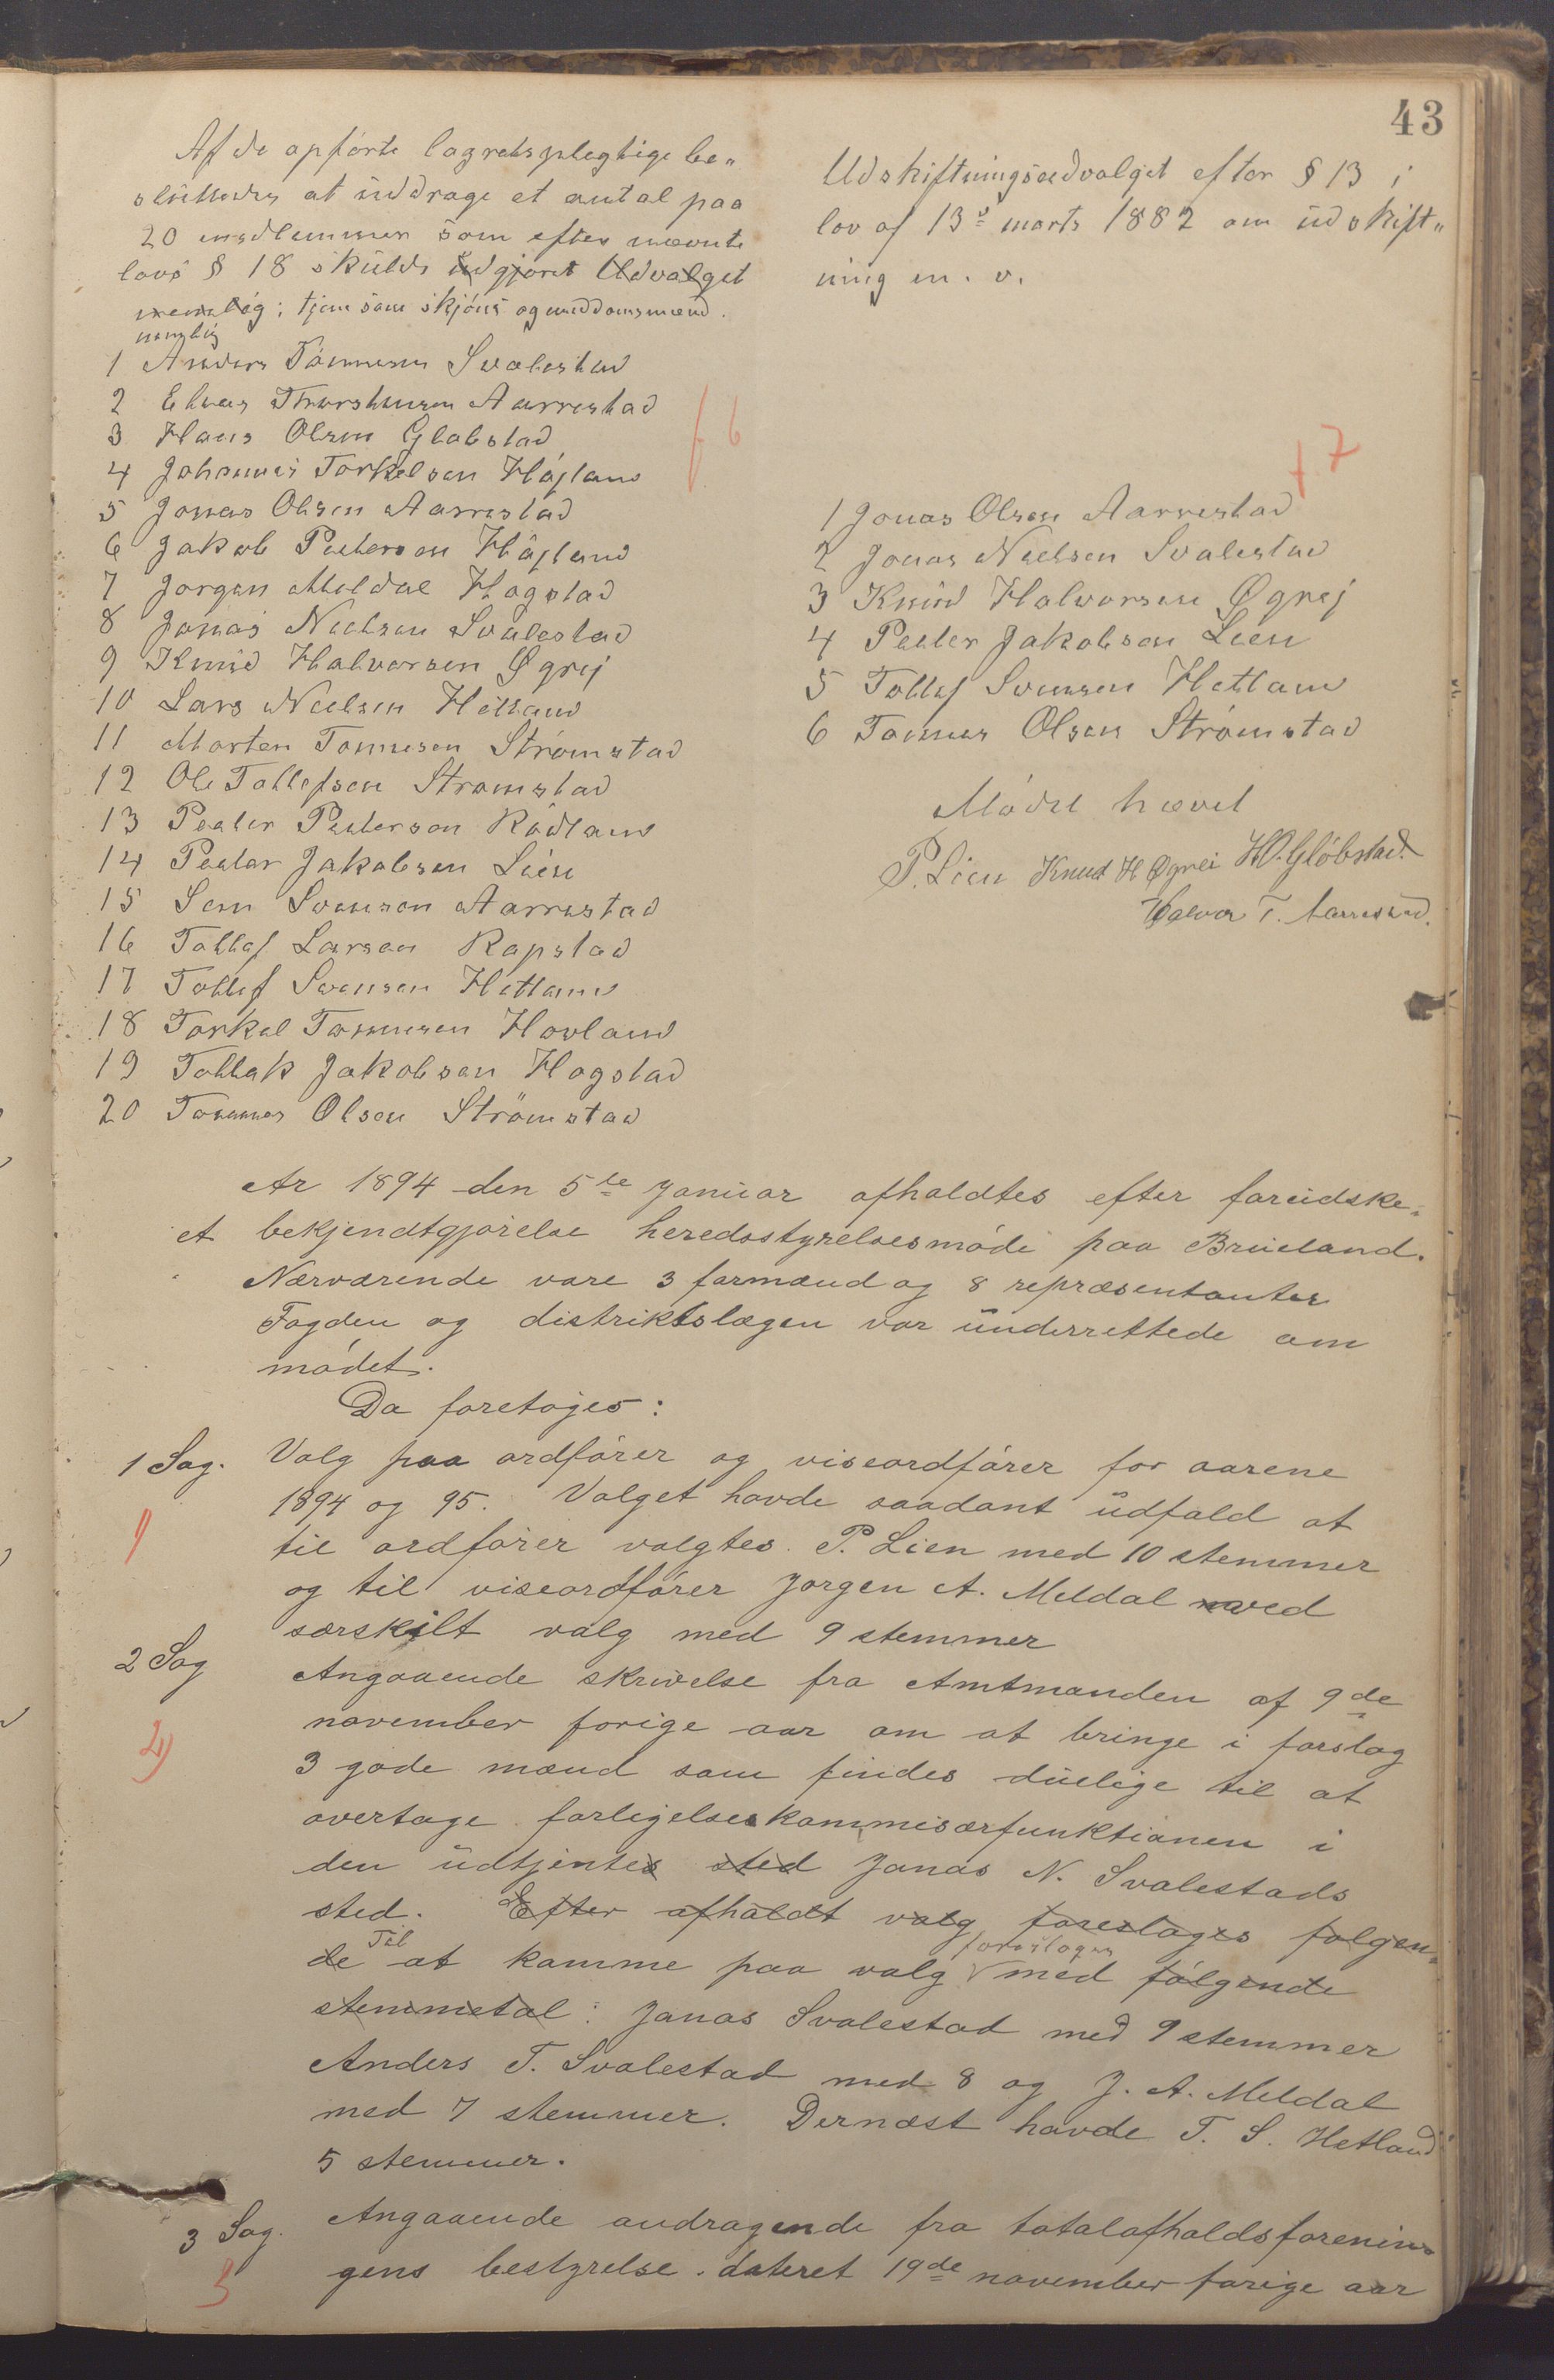 43
Af de opførte lagretsplegtige be„
sluttedes at uddrage et antal paa
20 medlemmer som efter nævnte
lovs § 18 skulde udgjøret Udvalget
nemlig; tjene som skjøns og meddomsmænd.
nemlig
1 Anders Tønnesen Svalestad
2 Elias Thorstensen Aarrestad
3 Hans Olsen Gløbstad
4 Johannes Torkelsen Høiland
5 Jonas Olsen Aarrestad
6 Jakob Pederson Høiland
7 Jørgen Meldal Hogstad
8 Jonas Nielsen Svalestad
9 Knud Halvorsen Øgrej
10 Lars Nielsen Hetland
11 Morten Tønnesen Strømstad
12 Ole Tollefsen Strømstad
13 Peder Pederson Rødland
14 Peder Jakobsen Lien
15 Sem Svensen Aarrestad
16 Tollef Larsen Rapstad
17 Tollef Svensen Hetland
18 Torkel Tønnesen Hovland
19 Tollak Jakobsen Hogstad
20 Tønnes Olsen Strømstad
f 6
Udskiftningsudvalget efter § 13 i
lov af 13de marts 1882 om udskift„
ning m. v.
f 7
1 Jonas Olsen Aarrestad
2 Jonas Nielsen Svalestad
3 Knud Halvorsen Øgrej
4 Peder Jakobsen Lien
5 Tollef Svensen Hetland
6 Tønnes Olsen Strømstad
Mødet hævet
P. Lien Knud H Øgrei H.O. Gløbstad.
Halvor T. Aarrestad.
Ar 1894 den 5te januar afholdtes efter forudske„
et bekjendtgjørelse heredsstyrelsesmøde paa Brueland.
Nærværende vare 3 formænd og 8 repræsentanter
Fogden og distriktslægen var underrettede om
mødet.
Da foretoges:
1 Sag. Valg paa ordfører og viseordfører for aarene
1894 og 95. Valget havde saadant udfald at
1)
til ordfører valgtes P. Lien med 10 stemmer
og til viseordfører Jørgen A. Meldal ved
særskilt valg med 9 stemmer
2 Sag Angaaende skrivelse fra Amtmanden af 9de
november forige aar om at bringe i forslag
2)
3 gode mænd som findes duelige til at
overtage forligelseskommisærfunktionen i
den udtjentes sted Jonas N. Svalestads
sted. Efter afholdt valg foreslages følgen„
de Til at komme paa valg foreslages med følgende
stemmetal: Jonas Svalestad med 9 stemmer
Anders T. Svalestad med 8 og J. A. Meldal
med 7 stemmer. Dernæst havde T. S. Hetland
5 stemmer.
3 Sag. Angaaende andragende fra totalafholdsforenin„
3
gens bestyrelse dateret 19de november forige aar